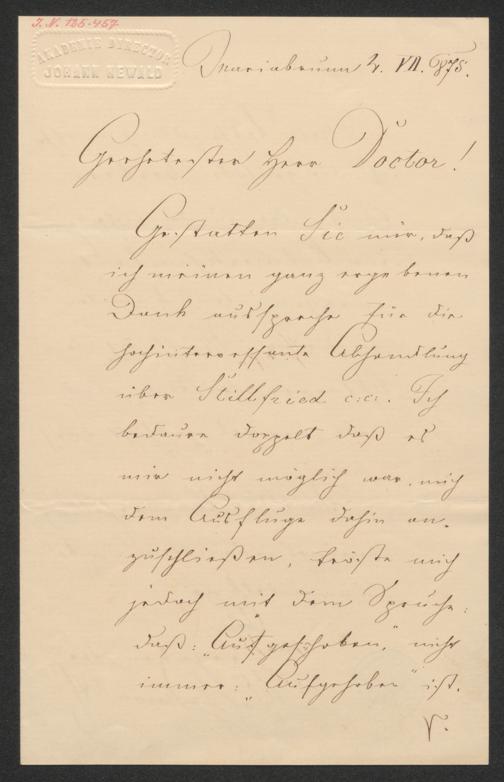 I. N. 125.457
AKADEMIE DIRECTOR
JOHANN NEWALD
Mariabrunn 2. VII. 875.
Geehrtester Herr Doctor!
Gestatten Sie mir, daß
ich meinen ganz ergebenen
Dank ausspreche für die
hochinteressante Abhandlung
über Stillfried c:c:. Ich
bedaure doppelt daß es
mir nicht möglich war, mich
dem Ausfluge dahin an-
zuschließen, tröste mich
jedoch mit dem Spruche:
daß: „Aufgeschoben," nicht
immer: „Aufgehoben" ist.
V.